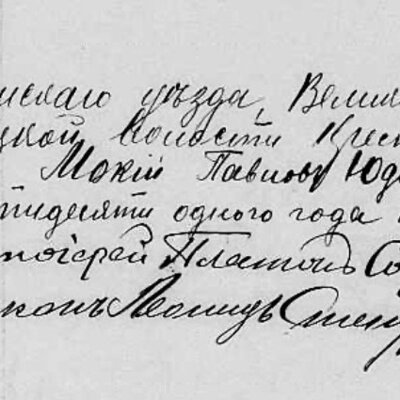 искаго уѣзда, Велик
цкой волости Крес
Мокій Павловъ Юд
тидесяти одного года
тоіерей Платонъ Со
конъ Леонидъ Степ